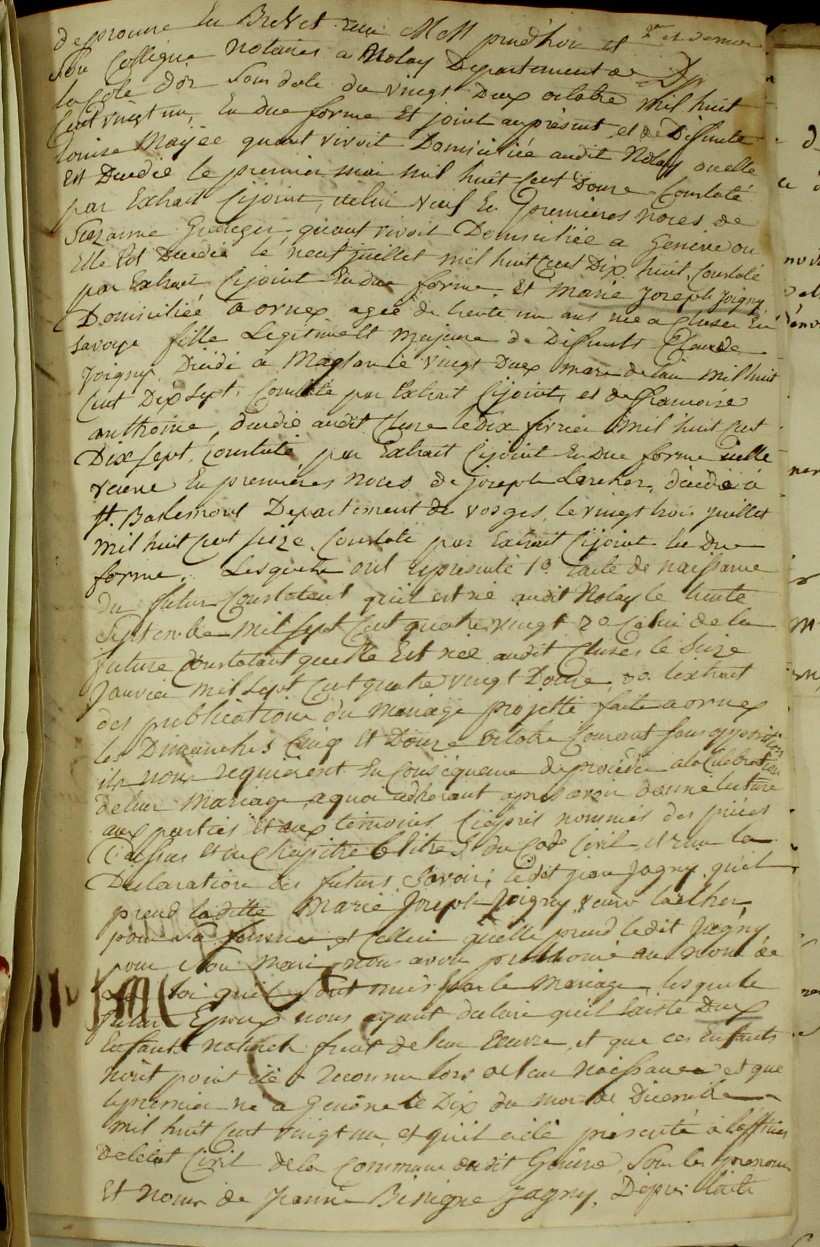 de procure en Brevet reçu M M prud'hon et
Son Collegue Notaires a Nolay Departement de
la Cote d'or Sous date du vingt Deux octobre mil huit
Cent vingt un, En due forme Et joint au present, et de Diffunte
Louise quant vivoit Domiciliée audit Nolay ou elle
Est Decedée le premier mai mil huit Cent Douze Constaté
par Extrait Cijoint, icelui veuf En premieres Noces de
Suzanne quant vivoit Domiciliée a Genève ou
Elle Est Decedée le neuf juillet mil huit Cent Dix huit, Constaté
par Extrait Cijoint En due forme, Et Marie Joseph Joigny,
Domiciliée a ornex agée de trente un ans née a Cluses En
Savoye fille Legitime et Majeure de Diffunts Claude
Joigny Décédé à Maglan le vingt Deux mars de l'an mil huit
Cent Dix Sept, Constaté par Extrait Cijoint, et de francoise
anthoine, décédée audit Cluse le Dix fevrier mil huit Cent
Dix Sept, Constaté par Extrait Cijoint En due forme icelle
veuve En premieres noces de joseph Larcher, décédé à
St. Departement de vosges, le vingt trois juillet
mil huit Cent Seize Constaté par Extrait Cijoint En due
forme, Lesquels ont representé 1º l'acte de naissance
du futur Constatant qu'il est né audit Nolay le trente
Septembre mil Sept Cent quatre vingt 2º Celui de la
future Constatant quelle Est née audit Cluses le Seize
Janvier mil Sept Cent quatre vingt Douze, 3º l'extrait
des publications du Mariage projetté faite a ornex
les Dimanches Cinq et Douze octobre Courant sans opposition
ils nous requierent En Consequence de procéder a la Celebration
de leur Mariage, a quoi adherant apres avoir donné lecture
aux parties et aux temoins Ciaprès nommés des pièces
Cidessus et du Chapitre 6 titre 5 du Code Civil et reçu la
Declaration des futurs Savoir, ledit jean Jagny, qu'il
prend laditte Marie Joseph Joigny veuve Larcher,
pour Sa femme et Celle qu'elle prend ledit Jagny
pour Son Mari, nous avons prononcé au Nom de
la loi qu'il Sont unis par le Mariage, lesquels
futur Epoux nous ayant declaré qu'il Existe Deux
Enfants naturels fruit de leur Œuvre, et que ces Enfants
n'ont point été reconnu lors de leur Naissance et que
le premier né a Genève le Dix du mois de Decembre
mil huit Cent vingt un, et qu'il a été présenté à l'officier
de l'etat Civil de la Commune dudit Geneve, Sous les prenoms
Et Noms de Jeanne Benigne Jagny, Depuis laditte